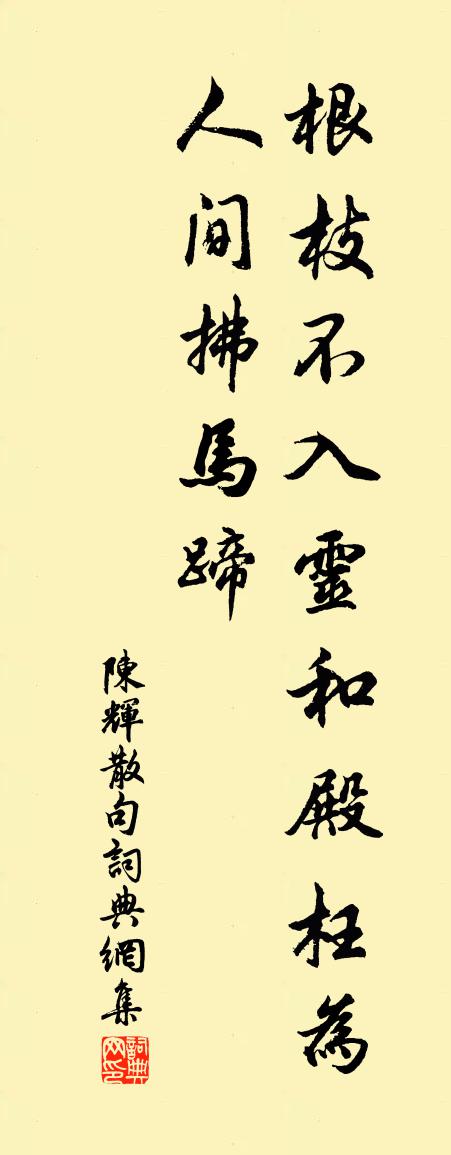 根枝不入靈和殿枉為
人间拂馬蹄
陳輝散句詞典網集
詞典网印